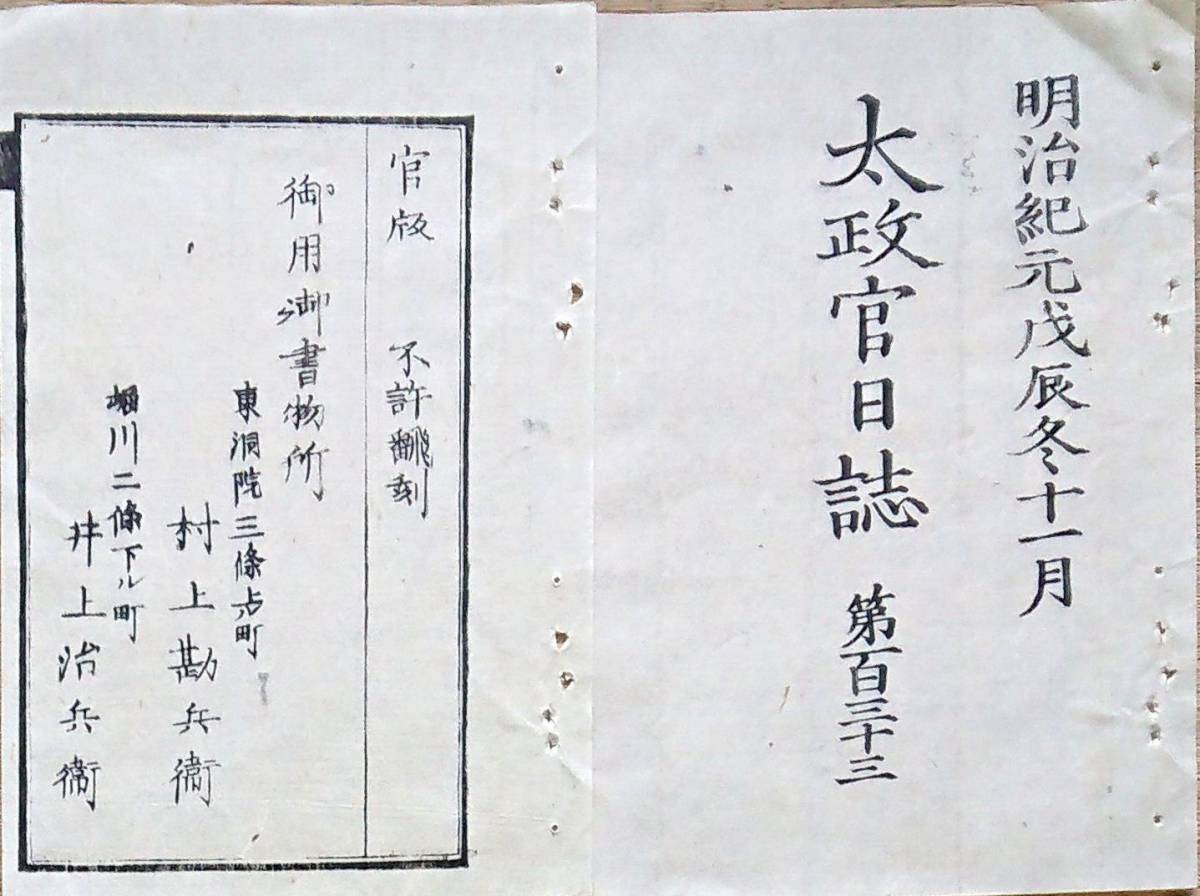 明治紀元戊辰冬十一月
太政官日誌 第百三十三
官版 不許翻刻
御用御書物所
東洞院三條上ル町
村上勘兵衞
堀川二條下ル町
井上治兵衞